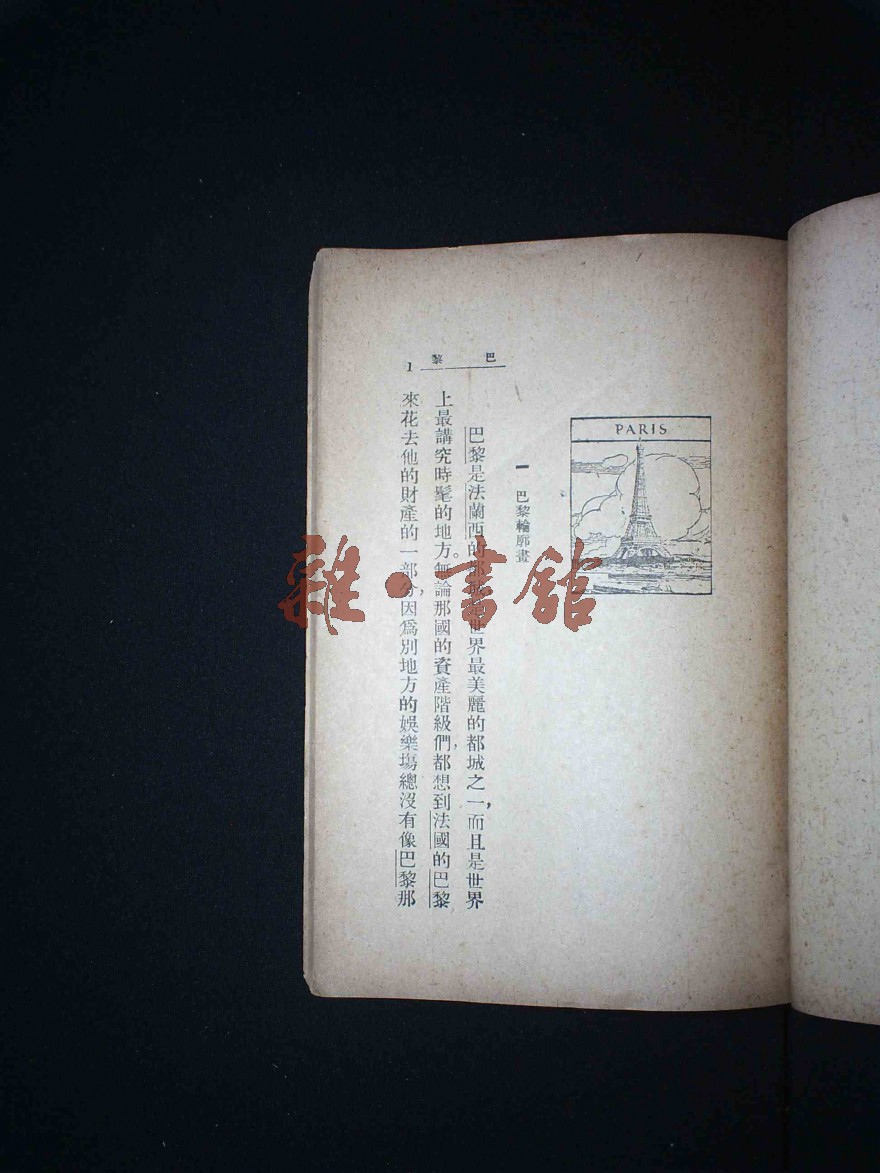 巴黎
1
PARIS
一 巴黎輪廓畫
巴黎是法蘭西的都城世界最美麗的都城之一,而且是世界
上最講究時髦的地方。無論那國的資產階級們,都想到法國的巴黎
來花去他的財產的一部分,因爲別地方的娛樂塲總沒有像巴黎那
雜·書館